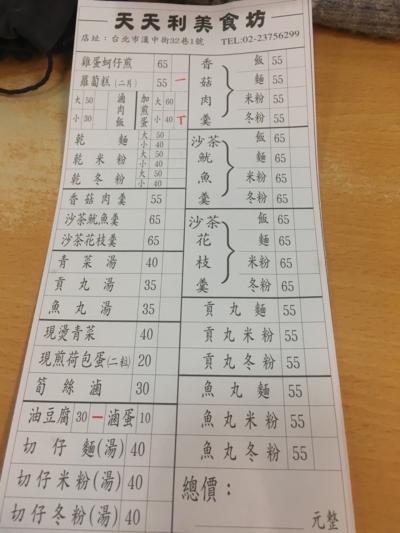 天天利美食坊
店址：台北市漢中街32巷1號 TEL:02-23756299
雞蛋蚵仔煎 65
蘿蔔糕(二片) 55 一
大 50 滷肉飯 加煎蛋 大 60
小 30 小 40 丅
乾麵 大 50 小 40
乾米粉 大 50 小 40
乾冬粉 大 50 小 40
香菇肉羹 55
沙茶魷魚羹 65
沙茶花枝羹 65
青菜湯 40
貢丸湯 35
魚丸湯 35
現燙青菜 40
現煎荷包蛋(二粒) 20
筍絲滷 30
油豆腐 30 一 滷蛋 10
切仔麵(湯) 40
切仔米粉(湯) 40
切仔冬粉(湯) 40
香菇肉羹
飯 55
麵 55
米粉 55
冬粉 55
沙茶魷魚羹
飯 65
麵 65
米粉 65
冬粉 65
沙茶花枝羹
飯 65
麵 65
米粉 65
冬粉 65
貢丸麵 55
貢丸米粉 55
貢丸冬粉 55
魚丸麵 55
魚丸米粉 55
魚丸冬粉 55
總價：
元整